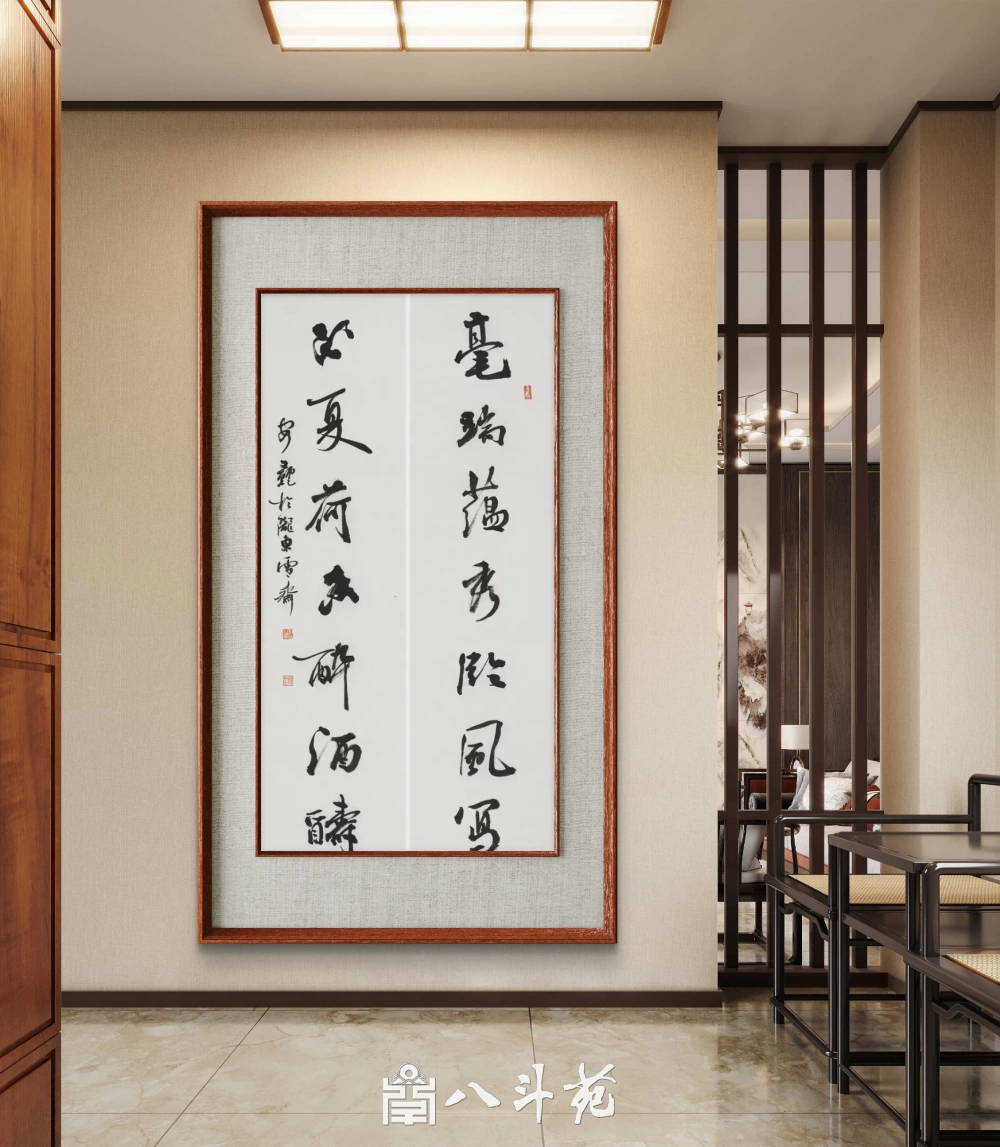 毫端蘊秀臨風寫
夏荷香醉酒醻
於隴東雪齋
八斗苑